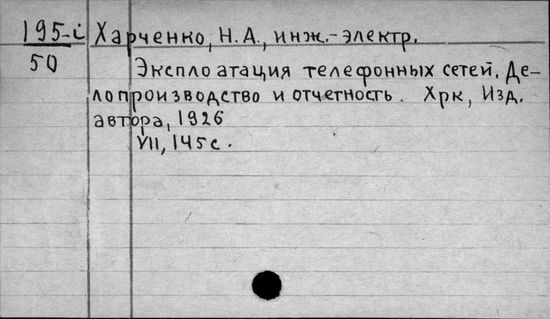 195-i Харченко, Н.А., инж.-электр.
50 Эксплоатация телефонных сетей. Де-
лопроизводство и отчетность. Хрк, Изд.
автора, 1926
VII, 145 с.